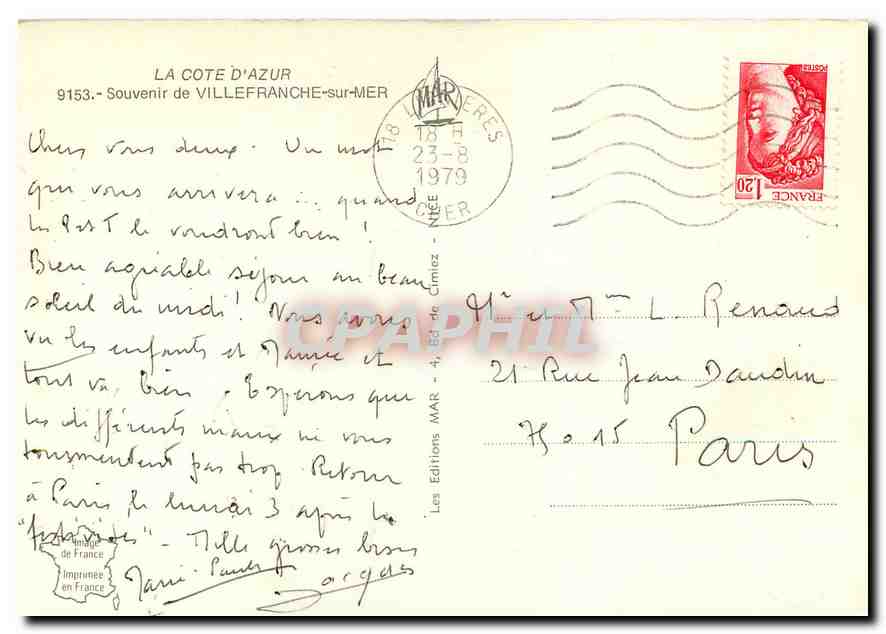 LA COTE D'AZUR
9153.- Souvenir de VILLEFRANCHE-sur-MER
Chers vous deux. Un mot
qui vous arrivera ... quand
les P et T le voudront bien !
Bien agréable séjour au beau
soleil du midi ! Nous avons
vu les enfants et Mamie et
tout va bien. Espérons que
les différents maux ne vous
tourmentent pas trop. Retour
à Paris le lundi 3 après les
"festivités" - Mille grosses bises
Marie-Paule
Image
de France
Imprimée
en France
Les Editions MAR - 4, Bd de Cimiez - NICE
MAR
18
ERES
18 H
23-8
1979
CHER
POSTES
1,20
FRANCE
Mr et Mme L. Renaud
21 Rue Jean Daudin
75015
Paris
CPAPHIL